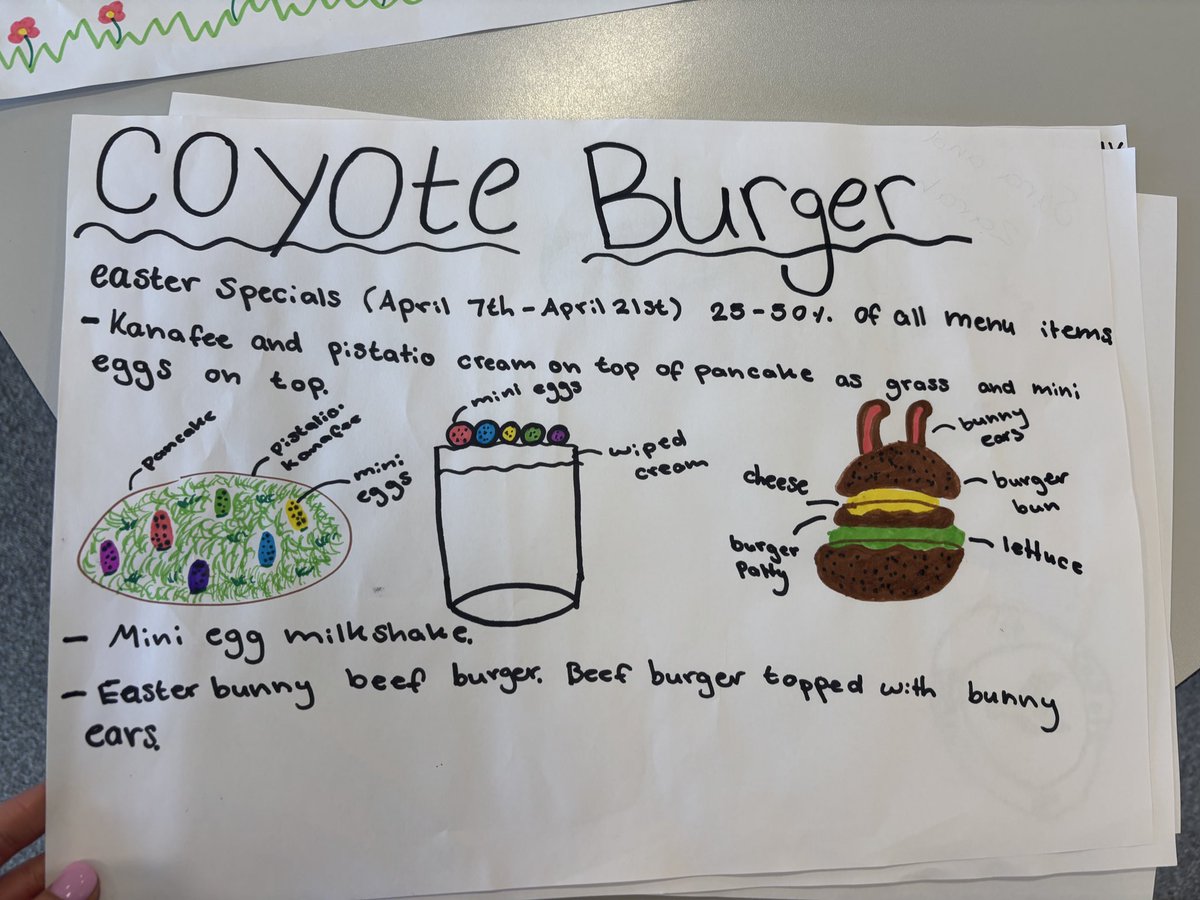 COYOte Burger
easter Specials (April 7th - April 21st) 25-50% of all menu items
- Kanafee and pistatio cream on top of pancake as grass and mini
eggs on top.
pancake
pistatio.
kanafee
mini
eggs
mini eggs
wiped
cream
bunny
ears
cheese
burger
bun
burger
patty
lettuce
- Mini egg milkshake.
- Easter bunny beef burger. Beef burger topped with bunny
ears.